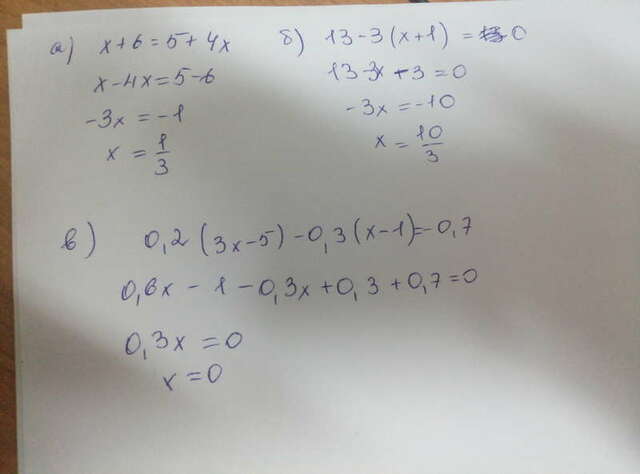 а) x+6=5+4x
x-4x=5-6
-3x=-1
x=1/3
б) 13-3(x+1)=0
13-3x-3=0
-3x=-10
x=10/3
в) 0,2(3x-5)-0,3(x-1)=-0,7
0,6x-1-0,3x+0,3+0,7=0
0,3x=0
x=0